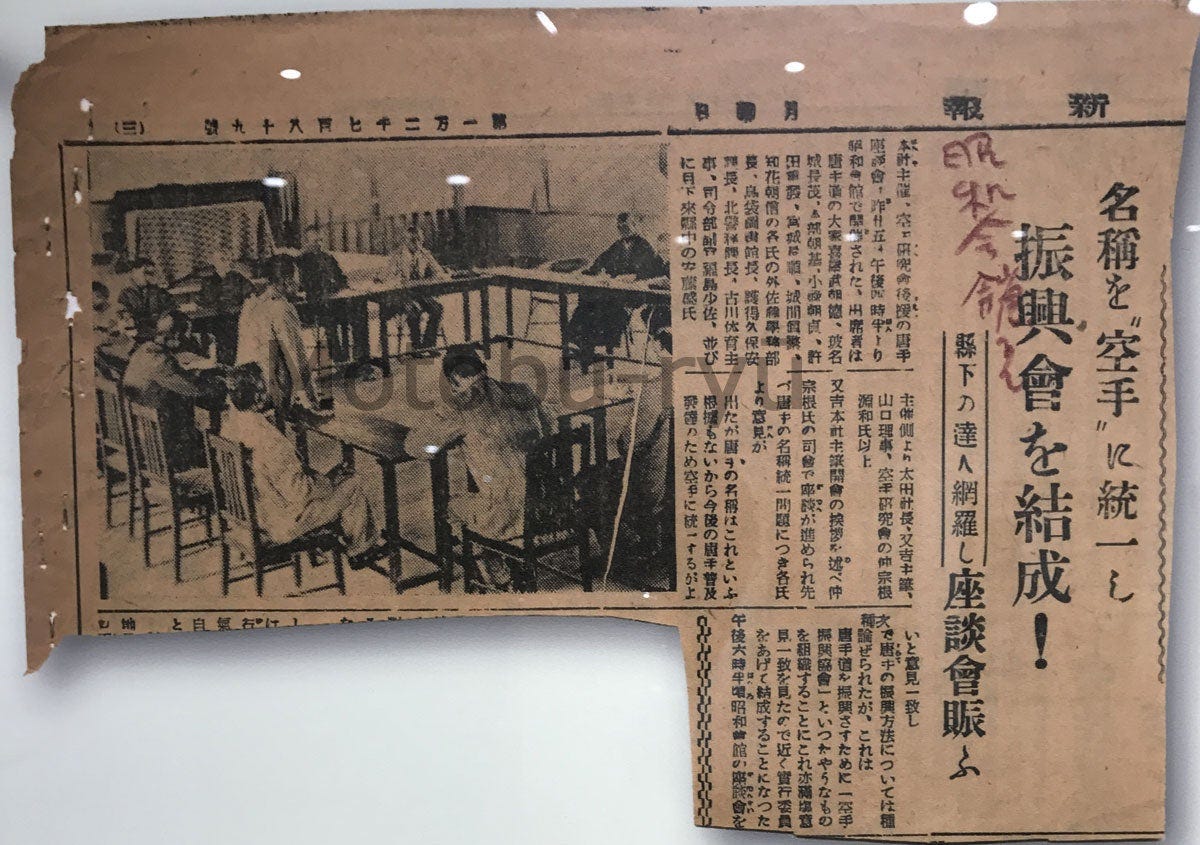 新報
月曜日
第一万二千七百八十九號 (三)
昭和会館にて
名稱を“空手”に統一し
振興會を結成!
縣下の達人網羅し
座談會賑ふ
本社主催、空手研究會後援の唐手
座談會は昨廿五日午後四時半より
昭和會館で開催された、出席者は
唐手道の大家喜屋武朝徳、花
城長茂、本部朝基、小祿朝貞、許
田重發、宮城長順、城間眞繁、
知花朝信の各氏の外佐藤學務部
長、島袋圖書館長、護得久保安
課長、北警務課長、古川体育主
事、司令部副官福島少佐、並び
に目下來縣中の安藤盛氏
主催側より太田社長、又吉主筆、
山口理事、空手研究會の仲宗根
源和氏以上
又吉本社主筆開會の挨拶を述べ仲
宗根氏の司會で座談が進められ先
づ唐手の名稱統一問題につき各氏
より意見が
出たが唐手の名稱はこれといふ
根據もないから今後の唐手普及
發達のため空手に統一するがよ
いと意見一致し
次で唐手の振興方法については種
種論ぜられたが、これは
唐手道を振興さすために「空手
振興協會」といつたやうなもの
を組織することにこれ亦滿塲意
見一致を見たので近く實行委員
をあげて結成することになつた
午後六時半頃昭和會館の座談會を
Motobu-ryu